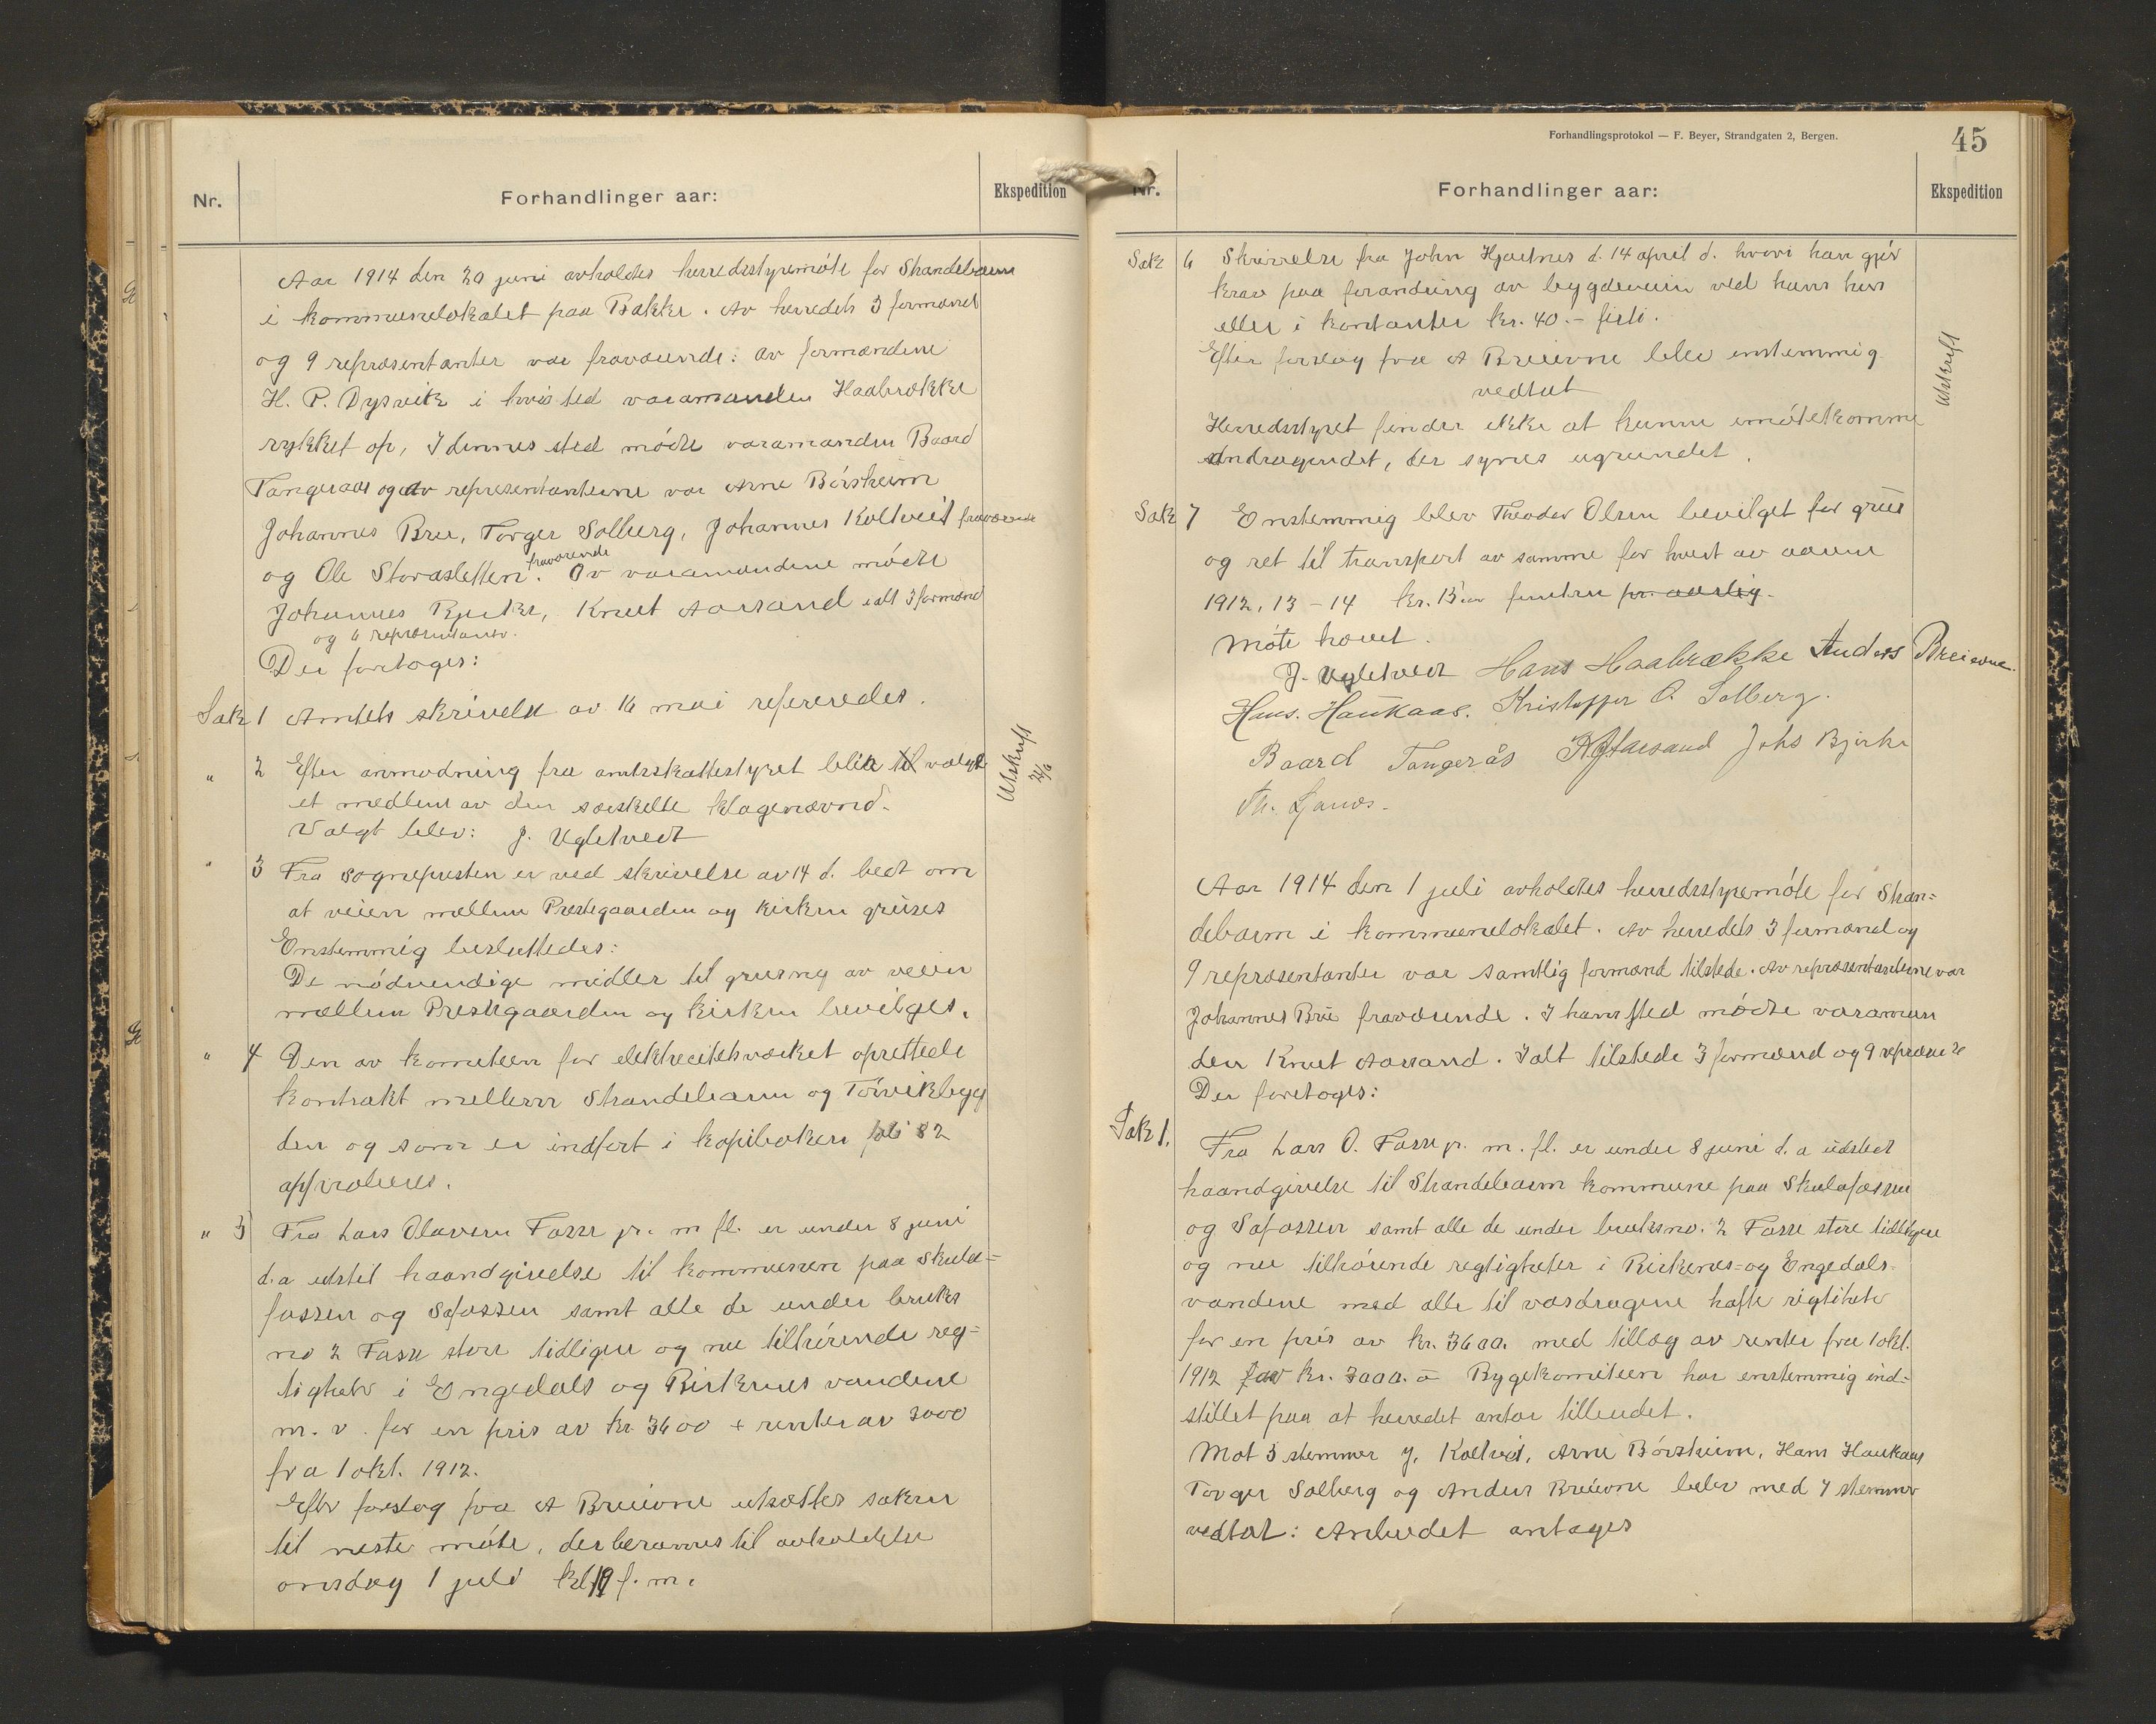 Nr. Forhandlinger aar: Ekspedition
Aar 1914 den 20 juni avholdtes herredsstyremöte for Strandebarm
i kommunelokalet paa Bakke. Av herredets 3 formænd
og 9 repræsentanter var fraværende: av formændene
H. P. Dysvik i hvis sted varamanden Haabrække
rykket op, I dennes sted mödte varamanden Baard
Tangeraas og av representanterne var Arne Börsheim
Johannes Bru, Torger Solberg, Johannes Koltveit fraværende
og Ole Storasletten. fraværende Av varamændene mödte
Johannes Bjerke, Knut Aarsand ialt 3 formænd
og 6 repræsentanter.
Der foretoges:
Sak 1 Amtets skrivelse av 16 mai refereredes.
" 2 Efter anmodning fra amtsskattestyret blir valgt
et medlem av den særskilte klagenævnd.
Valgt blev: J. Ugletvedt
Utskrift
" 3 Fra sognepresten er ved skrivelse av 14 d. bedt om
at veien mellem Prestegaarden og kirken gruses
Enstemmig besluttedes:
De nödvendige midler til grusing av veien
mellem Prestegaarden og kirken bevilges.
" 4 Den av komiteen for elektricitetsværket oprettede
kontrakt mellem Strandebarm og Törvikbyg
den og som er indfört i kopiboken 82
approberes.
" 5 Fra Lars Olavsen Fosse jr. m fl. er under 8 juni
d.a utstet haandgivelse til kommunen paa Skula=
fossen og Safossen samt alle de under bruks
no 2 Fosse store tidligere og nu tilhörende reg=
tigheter i Engedals og Kirkenes vandene
m. v. for en pris av kr. 3600 + renter av 3000
fra 1 okt. 1912.
Efter forslag fra A Breievne utsættes saken
til neste möte, der berammes til avholdelse
onsdag 1 juli kl. f. m.
Forhandlingsprotokol — F. Beyer, Strandgaten 2, Bergen.
45
Nr. Forhandlinger aar: Ekspedition
Sak 6 Skrivelse fra John Hjartnes d. 14 april d. hvori han gjör
krav paa forandring av bygdeveien ved hans hus
eller i kontanter kr. 40.- firti.
Efter forslag fra A Breievne blev enstemmig
vedtat
Herredsstyret finder ikke at kunne imötekomme
andragendet, der synes ugrundet.
Utskrift
Sak 7 Enstemmig blev Theodor Olsen bevilget for grus
og ret til transport av samme for hvert av aarene
1912, 13 - 14 kr. 15.00 femten pr. aarlig.
Möte hævet.
J. Ugletvedt Hans Haabrække Anders Breievne.
Hans. Haukaas. Kristoffer O. Solberg.
Baard Tangerås K Aarsand Johs Bjerke
Th. Ljones.
Aar 1914 den 1 juli avholdtes herredsstyremöte for Stran=
debarm i kommunelokalet. Av herredets 3 formænd og
9 repræsentanter var samtlig formænd tilstede. Av repræsentanterne var
Johannes Bru fraværende. I hans sted mödte varaman
den Knut Aarsand. Ialt tilstede 3 formænd og 9 repræs
Der foretoges:
Sak 1.
Fra Lars O. Fosse jr. m. fl. er under 8 juni d. a utstedt
haandgivelse til Strandebarm kommune paa Skulafossen
og Safossen samt alle de under bruksno. 2 Fosse store tidligere
og nu tilhörende regtigheter i Kirkenes- og Engedals-
vandene med alle til vasdragene hafte rigtiheter
for en pris av kr. 3600. med tillæg av renter fra 1 okt.
1912 av kr. 3000.- Bygekomiteen har enstemmig ind=
stillet paa at herredet antar tilbudet.
Mot 5 stemmer J. Koltveit, Arne Börsheim, Hans Haukaas
Torger Solberg og Anders Breievne blev med 7 stemmer
vedtat: Anbudet antages